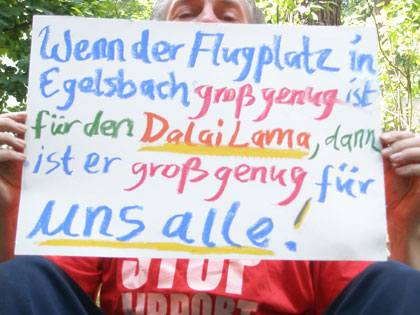 Wenn der Flugplatz in
Egelsbach groß genug ist
für den Dalai Lama, dann
ist er groß genug für
uns alle!
STOP